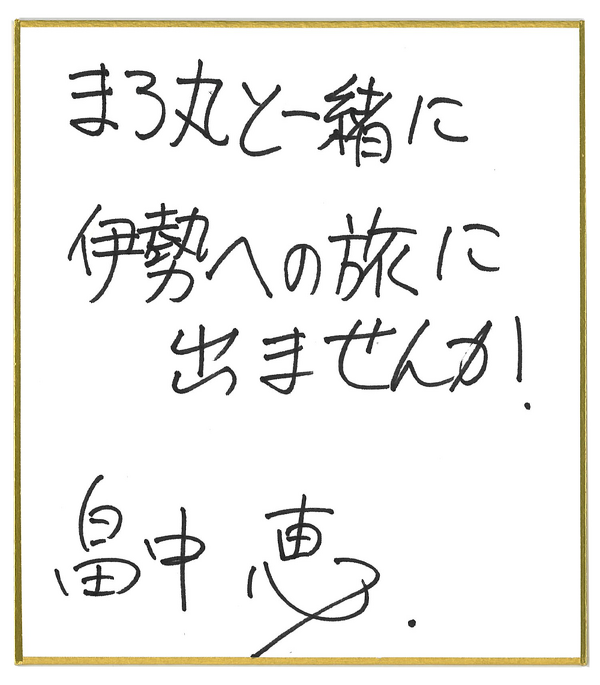 まろ丸と一緒に
伊勢への旅に
出ませんか!
畠中 恵.